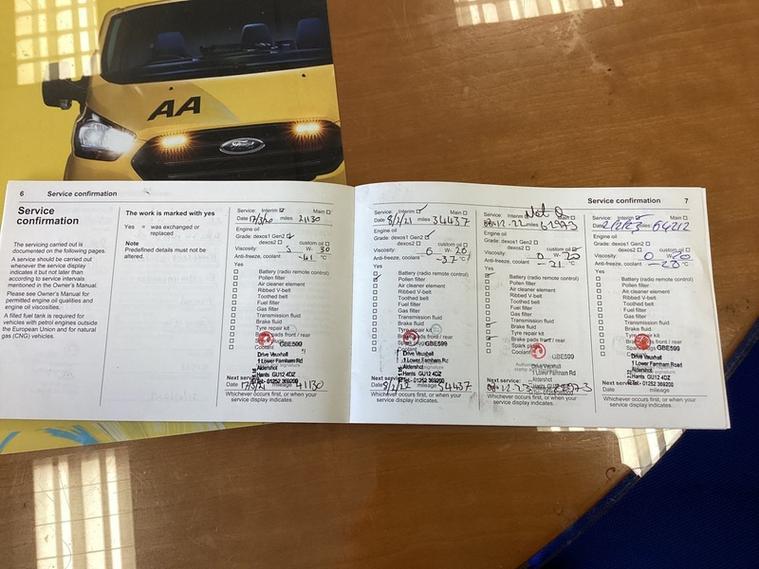 AA
Ford
6 Service confirmation
Service
confirmation
The servicing carried out is
documented on the following pages.
A service should be carried out
whenever the service display
indicates it but not later than
according to service intervals
mentioned in the Owner's Manual.
Please see Owner's Manual for
permitted engine oil qualities and
engine oil viscosities.
A filled fuel tank is required for
vehicles with petrol engines outside
the European Union and for natural
gas (CNG) vehicles.
The work is marked with yes
Yes = was exchanged or
replaced
Note
Predefined details must not be
altered.
Service: Interim Main
Date 17/3/20 miles 21130
Engine oil
Grade: dexos1 Gen2
dexos2 custom oil
Viscosity: 5 W- 30
Anti-freeze, coolant -41 °C
Yes
Battery (radio remote control)
Pollen filter
Air cleaner element
Ribbed V-belt
Toothed belt
Fuel filter
Gas filter
Transmission fluid
Brake fluid
Tyre repair kit
Brake pads front / rear
Spark plugs
Coolant
GBE599
Drive Vauxhall
1 Lower Farnham Road
Aldershot
Hants GU12 4DZ
Tel - 01252 369200
Next service:
Date 17/3/21 mileage 41130
Whichever occurs first, or when your
service display indicates.
Service: Interim Main
Date 8/2/21 miles 34437
Engine oil
Grade: dexos1 Gen2
dexos2 custom oil
Viscosity: 0 W- 20
Anti-freeze, coolant -37 °C
Yes
Battery (radio remote control)
Pollen filter
Air cleaner element
Ribbed V-belt
Toothed belt
Fuel filter
Gas filter
Transmission fluid
Brake fluid
Tyre repair kit
Brake pads front / rear
Spark plugs
Coolant
GBE599
Drive Vauxhall
1 Lower Farnham Road
Aldershot
Hants GU12 4DZ
Tel - 01252 369200
Next service:
Date 8/2/22 mileage 54437
Whichever occurs first, or when your
service display indicates.
Service: Interim
miles
Engine oil
Grade: dexos1 Gen2
dexos2 custom oil
Viscosity: 0 W- 20
Anti-freeze, coolant -21 °C
Yes
Battery (radio remote control)
Pollen filter
Air cleaner element
Ribbed V-belt
Toothed belt
Fuel filter
Gas filter
Transmission fluid
Brake fluid
Tyre repair kit
Brake pads front / rear
Spark plugs
Coolant
GBE599
Drive Vauxhall
1 Lower Farnham Road
Aldershot
Hants GU12 4DZ
Tel - 01252 369200
Next service:
Whichever occurs first, or when your
service display indicates.
Service confirmation 7
Service: Interim Main
Date 2/2/23 miles 64212
Engine oil
Grade: dexos1 Gen2
dexos2 custom oil
Viscosity: 0 W- 20
Anti-freeze, coolant °C
Yes
Battery (radio remote control)
Pollen filter
Air cleaner element
Ribbed V-belt
Toothed belt
Fuel filter
Gas filter
Transmission fluid
Brake fluid
Tyre repair kit
Brake pads front / rear
Spark plugs
Coolant
GBE599
Drive Vauxhall
1 Lower Farnham Road
Aldershot
Hants GU12 4DZ
Tel - 01252 369200
Next service:
Date mileage
Whichever occurs first, or when your
service display indicates.